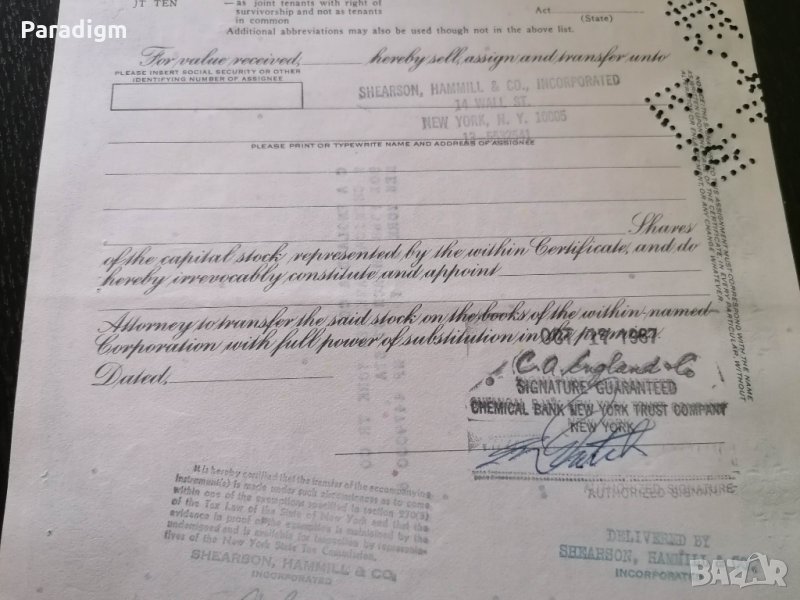 Paradigm
JT TEN — as joint tenants with right of
survivorship and not as tenants
in common
Act
(State)
Additional abbreviations may also be used though not in the above list.
For value received, hereby sell, assign and transfer unto
PLEASE INSERT SOCIAL SECURITY OR OTHER
IDENTIFYING NUMBER OF ASSIGNEE
SHEARSON, HAMMILL & CO., INCORPORATED
14 WALL ST.
NEW YORK, N. Y. 10005
PLEASE PRINT OR TYPEWRITE NAME AND ADDRESS OF ASSIGNEE
Shares
of the capital stock represented by the within Certificate, and do
hereby irrevocably constitute and appoint
Attorney to transfer the said stock on the books of the within-named
Corporation with full power of substitution in the premises.
Dated,
C.A. England & Co
SIGNATURE GUARANTEED
CHEMICAL BANK NEW YORK TRUST COMPANY
NEW YORK
AUTHORIZED SIGNATURE
It is hereby certified that the transfer of the accompanying
instrument(s) is made under such circumstances as to come
within one of the exemptions specified in section 270(5)
of the Tax Law of the State of New York and that the
evidence in proof of the exemption is maintained by the
undersigned and is available for inspection by representa-
tives of the New York State Tax Commission.
SHEARSON, HAMMILL & CO.
INCORPORATED
DELIVERED BY
SHEARSON, HAMMILL & CO.
INCORPORATED
NOTICE: THE SIGNATURE TO THIS ASSIGNMENT MUST CORRESPOND WITH THE NAME
AS WRITTEN UPON THE FACE OF THE CERTIFICATE, IN EVERY PARTICULAR, WITHOUT
ALTERATION OR ENLARGEMENT OR ANY CHANGE WHATEVER.
BAZAR